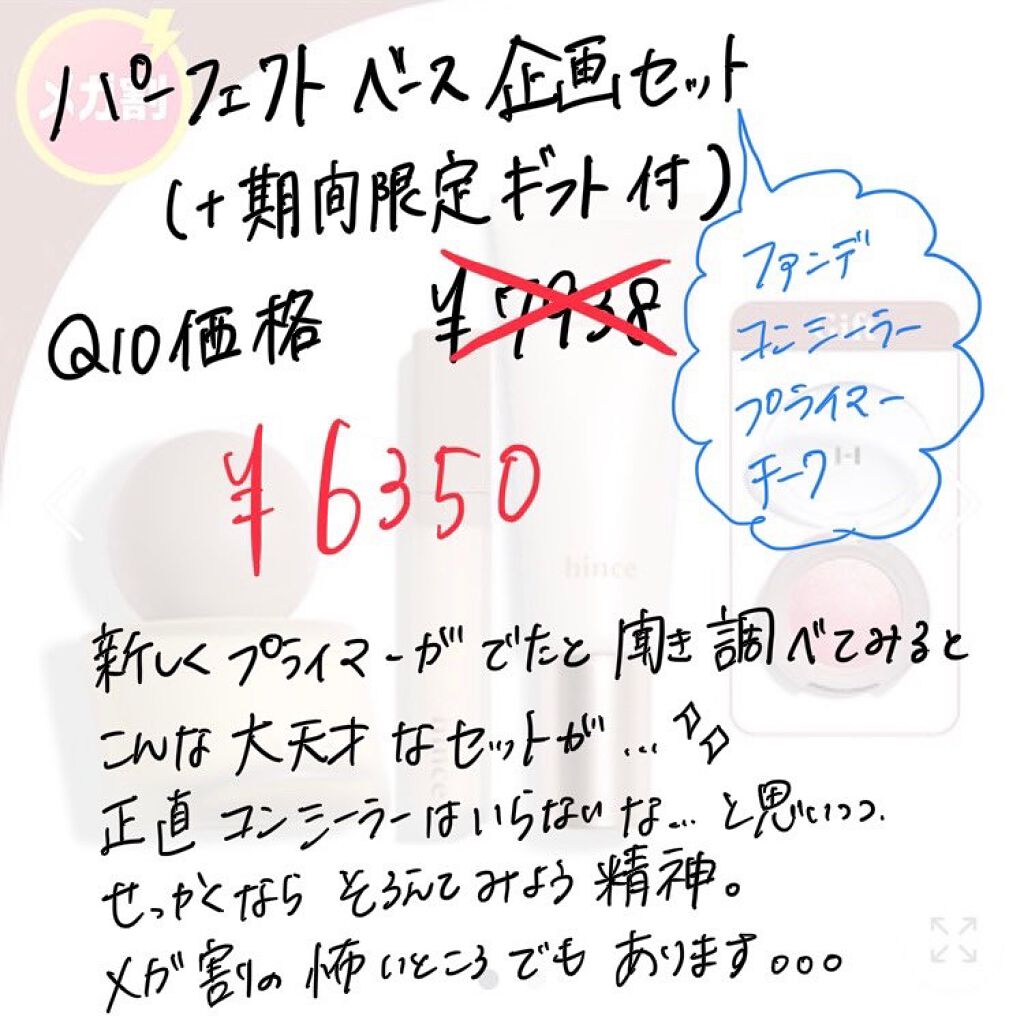 メガ割
パーフェクトベース企画セット
(+期間限定ギフト付)
Q10価格 ¥7938
¥6350
ファンデ
コンシーラー
プライマー
チーク
Gift
H
hince
hince
新しくプライマーがでたと聞き調べてみると
こんな大天才なセットが...
正直コンシーラーはいらないな...と思いつつ、
せっかくならそろえてみよう精神。
メガ割の怖いところでもあります。。。